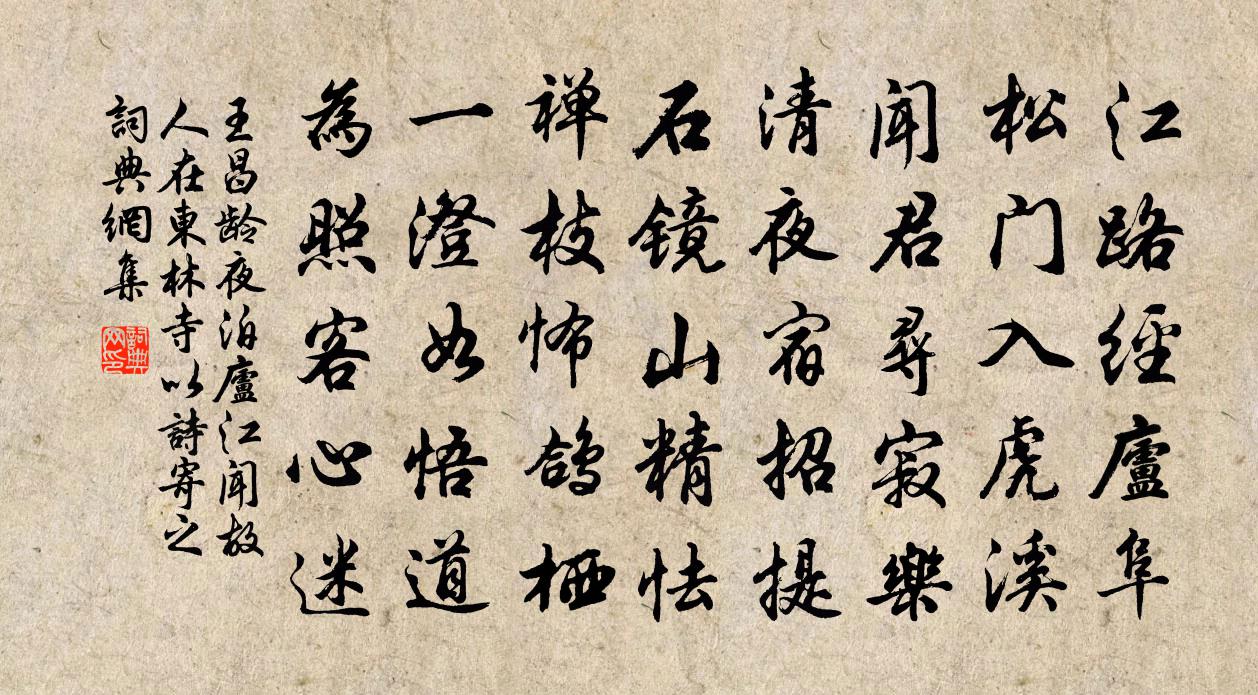 江路經廬阜
松门入虎溪
闻君尋寂樂
清夜宿招提
石镜山精怯
禅枝怖鸽栖
一澄如悟道
為照客心迷
王昌龄夜泊廬江闻故
人在東林寺以詩寄之
詞典網集
詞典网印